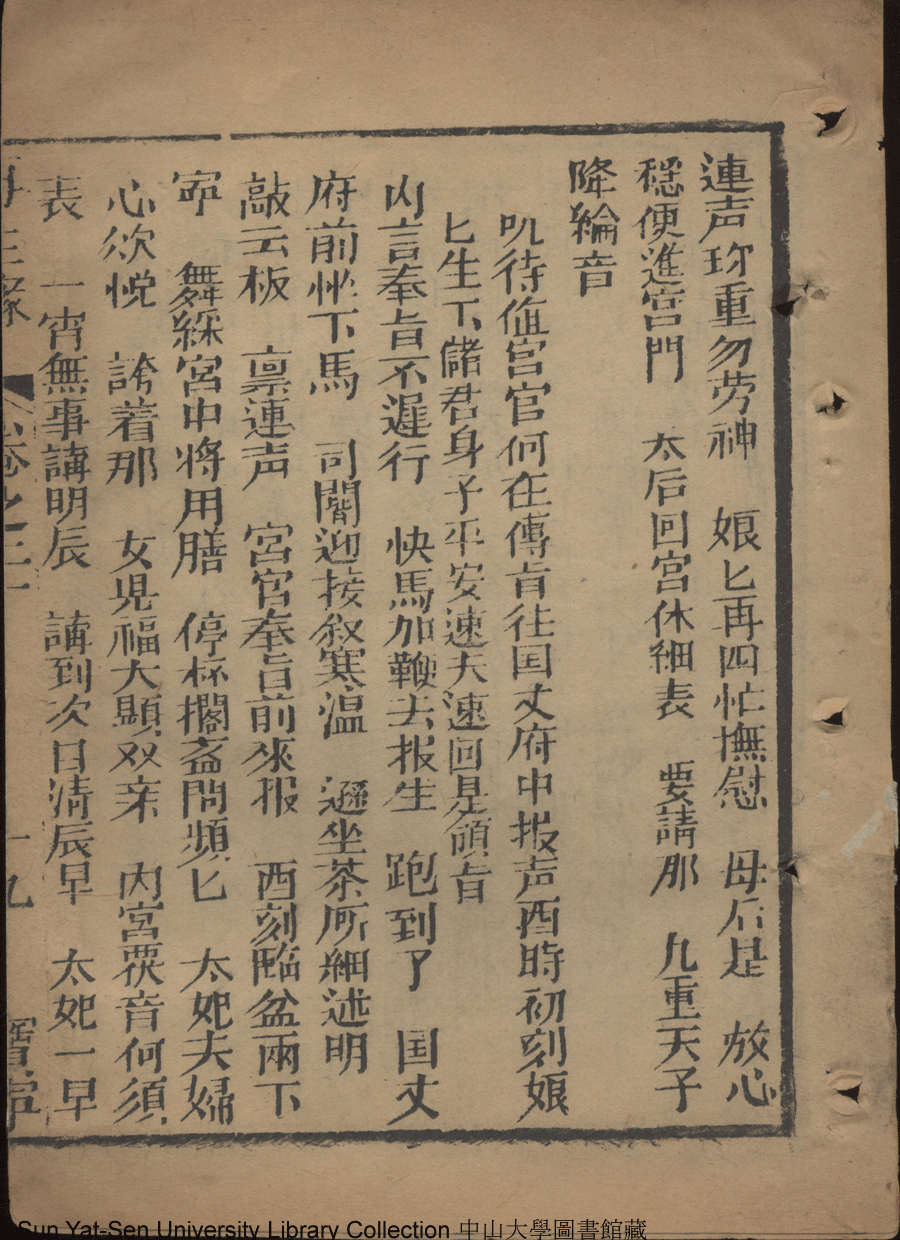 連声珎重勿劳神　娘匕再四忙撫慰　母后是　放心
穏便進宫門　太后回宫休細表　要請那　九重天子
降綸音
叽待值宫官何在傳旨往国丈府中报声酉時初刻娘
匕生下儲君身子平安速去速回是領旨
内言奉旨不遲行　快馬加鞭去报生　跑到了　国丈
府前㘴下馬　司閽迎接叙寒温　遜坐茶所細述明
敲云板　禀連声　宮官奉旨前來报　酉刻臨盆兩下
寍　舞綵宮中將用膳　停杯擱盞問頻匕　太妃夫婦
心欢悅　誇着那　女児福大顯双亲　内宮覆音何須
表　一宵無事講明辰　講到次日清辰早　太妃一早
再生緣　卷之三十　十九
Sun Yat-Sen University Library Collection 中山大學圖書館藏